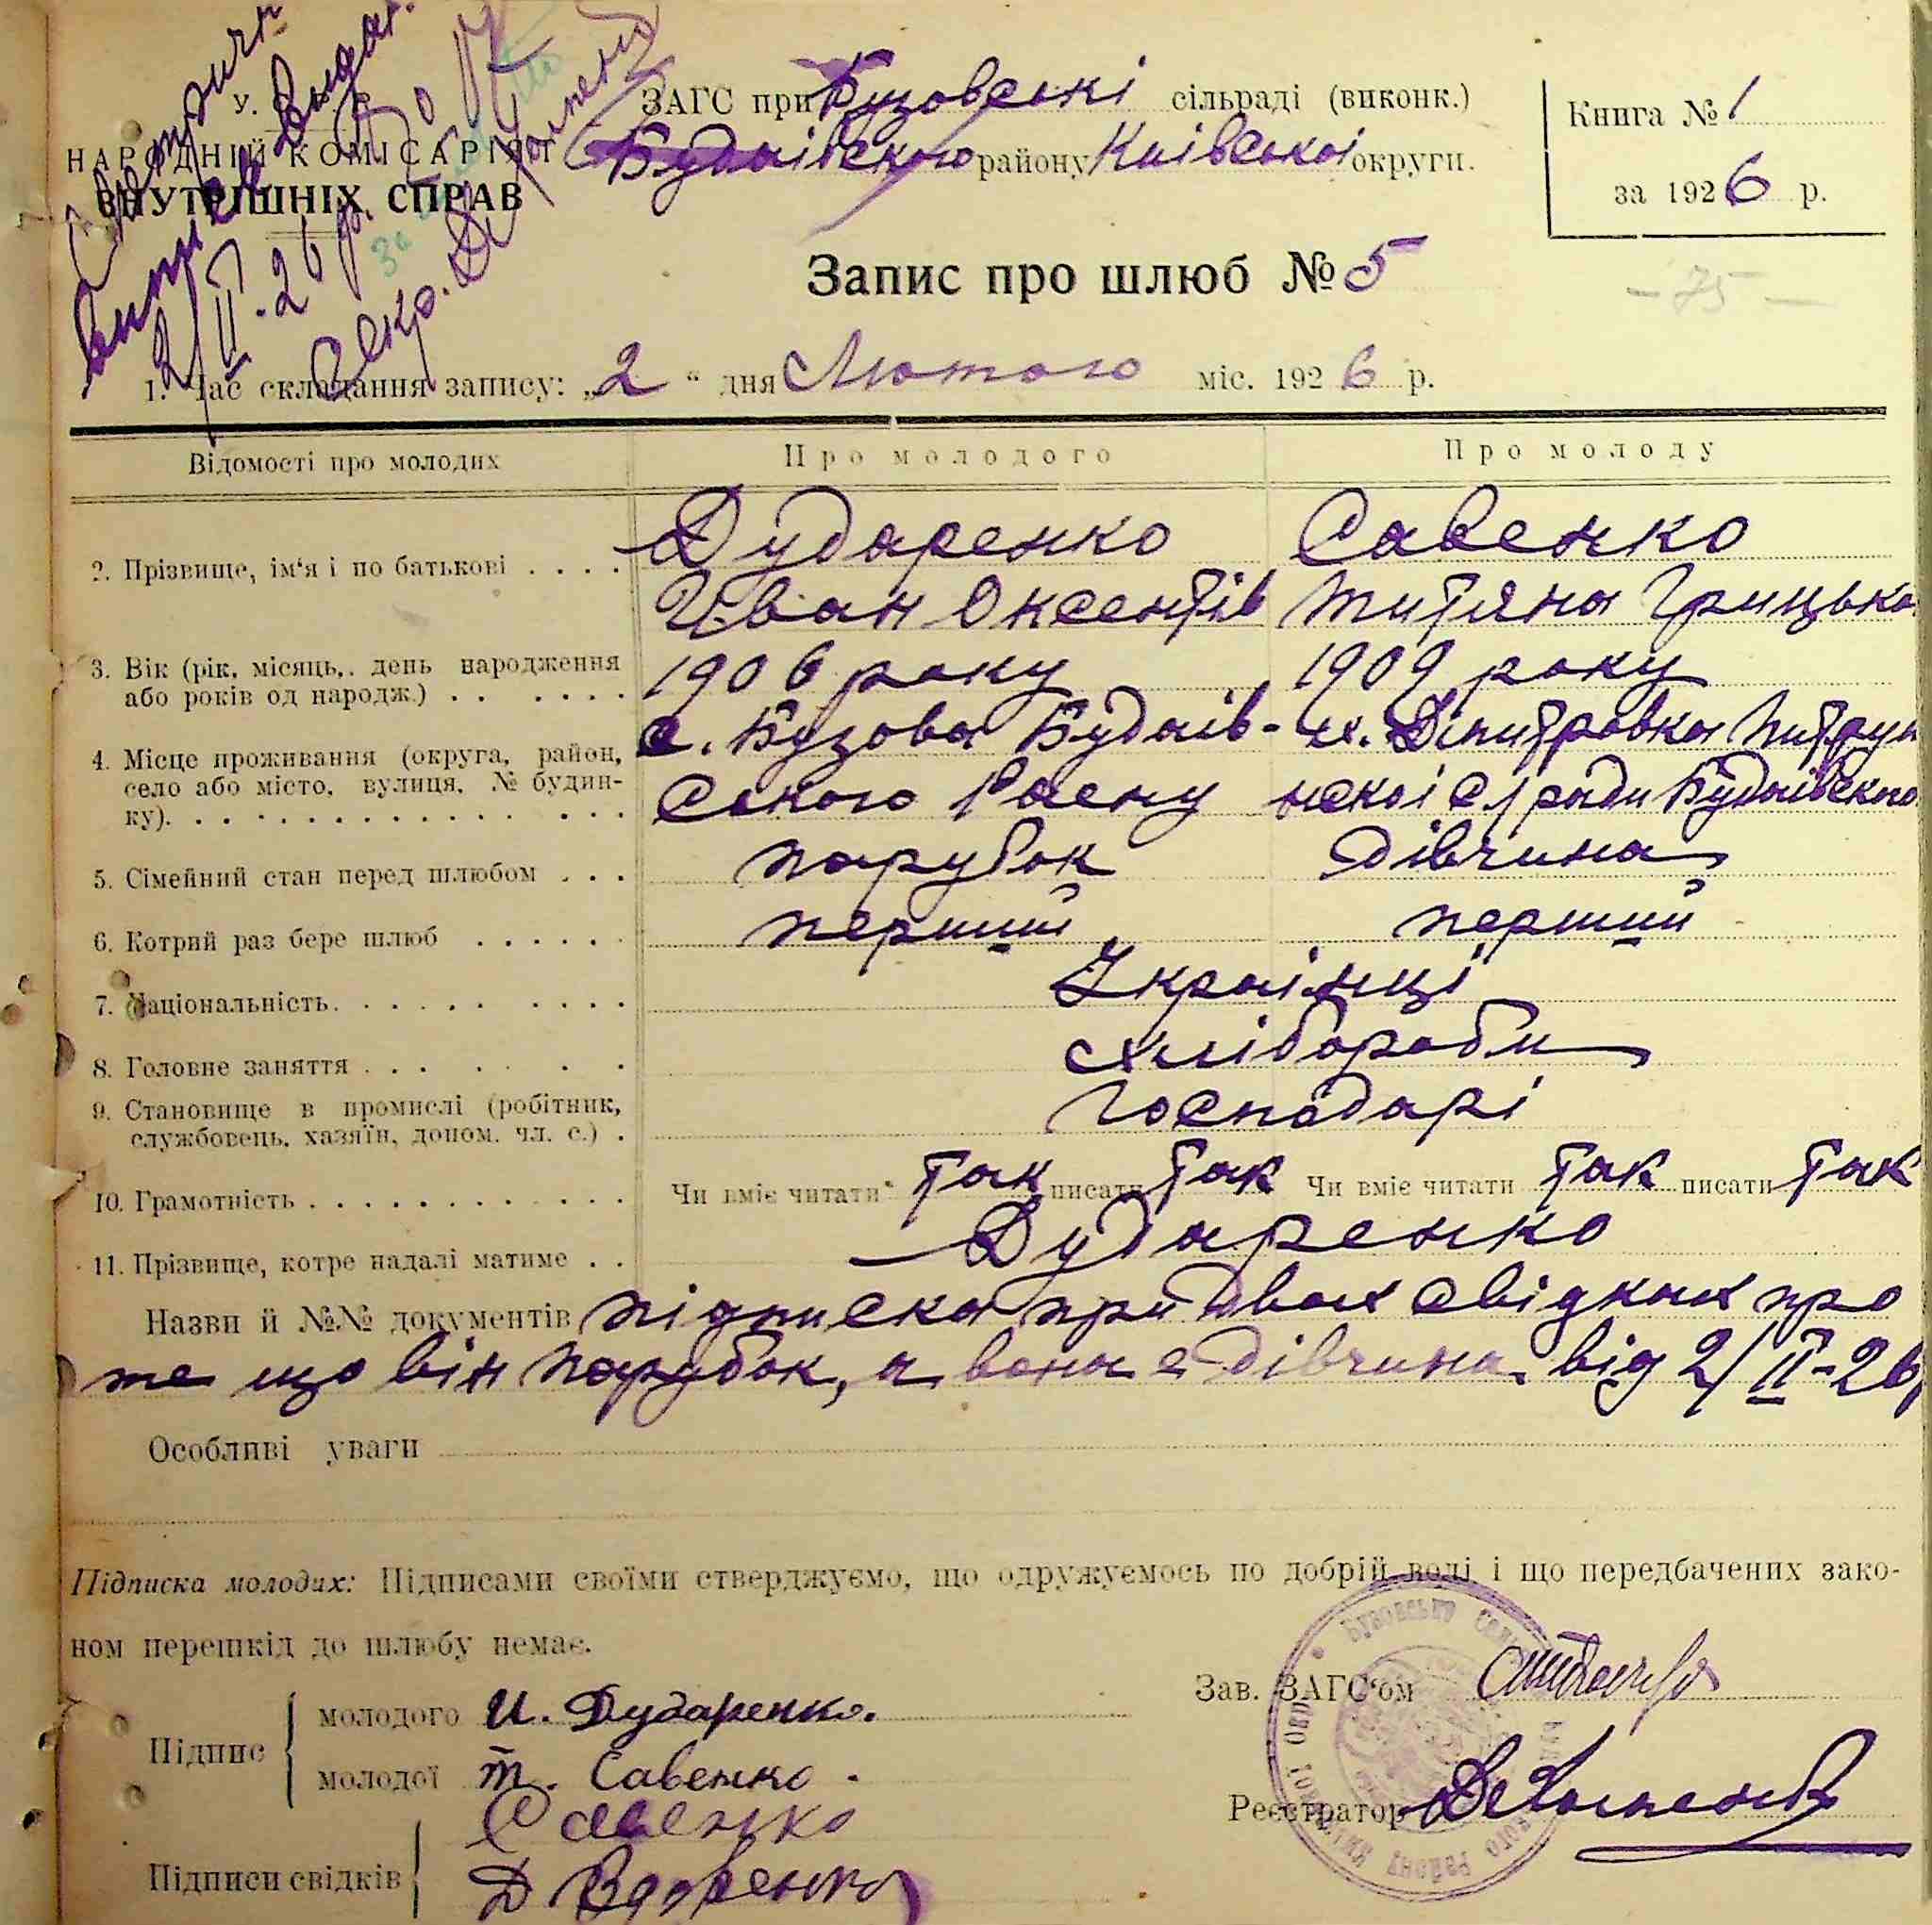 У. С. Р. Р.
НАРОДНІЙ КОМІСАРІЯТ
ВНУТРІШНІХ СПРАВ
випис видат.
2/II.26 р.
Секр.
ЗАГС при Бузовські сільраді (виконк.)
Будаівского району Киівскоі округи.
Книга № 1
за 1926 р.
Запис про шлюб № 5
- 75 -
1. Час складання запису: „2“ дня Лютого міс. 1926 р.
Відомості про молодих Про молодого Про молоду
2. Прізвище, ім‘я і по батькові . . . . Дударенко Савенко
Иван Оксентів Титяна Грицько
3. Вік (рік, місяць, день народження
або років од народж.) . . . . . . 1906 року 1909 року
4. Місце проживання (округа, район,
село або місто, вулиця, № будин-
ку). . . . . . . . . . . . . . .
с. Бузова Будаів- х. Дмитровка
ского Раену с/ради Будаівского
5. Сімейний стан перед шлюбом . . . парубок дівчина
6. Котрий раз бере шлюб . . . . . . перший перший
7. Національність. . . . . . . . . . Украінці
8. Головне заняття . . . . . . . хлібороби
9. Становище в промислі (робітник,
службовець, хазяїн, допом. чл. с.) . Господарі
10. Грамотність . . . . . . . . . . . Чи вміє читати так писати так Чи вміє читати так писати так
11. Прізвище, котре надалі матиме . . Дударенко
Назви й №№ документів підписка при двох свідках про
те що він парубок, а вона є дівчина від 2/II-26
Особливі уваги
Підписка молодих: Підписами своїми стверджуємо, що одружуємось по добрій волі і що передбачених зако-
ном перешкід до шлюбу немає.
Зав. ЗАГС‘ом
Підпис
молодого И. Дударенко.
молодої Т. Савенко.
Реєстратор
Підписи свідків
Савенко
Д